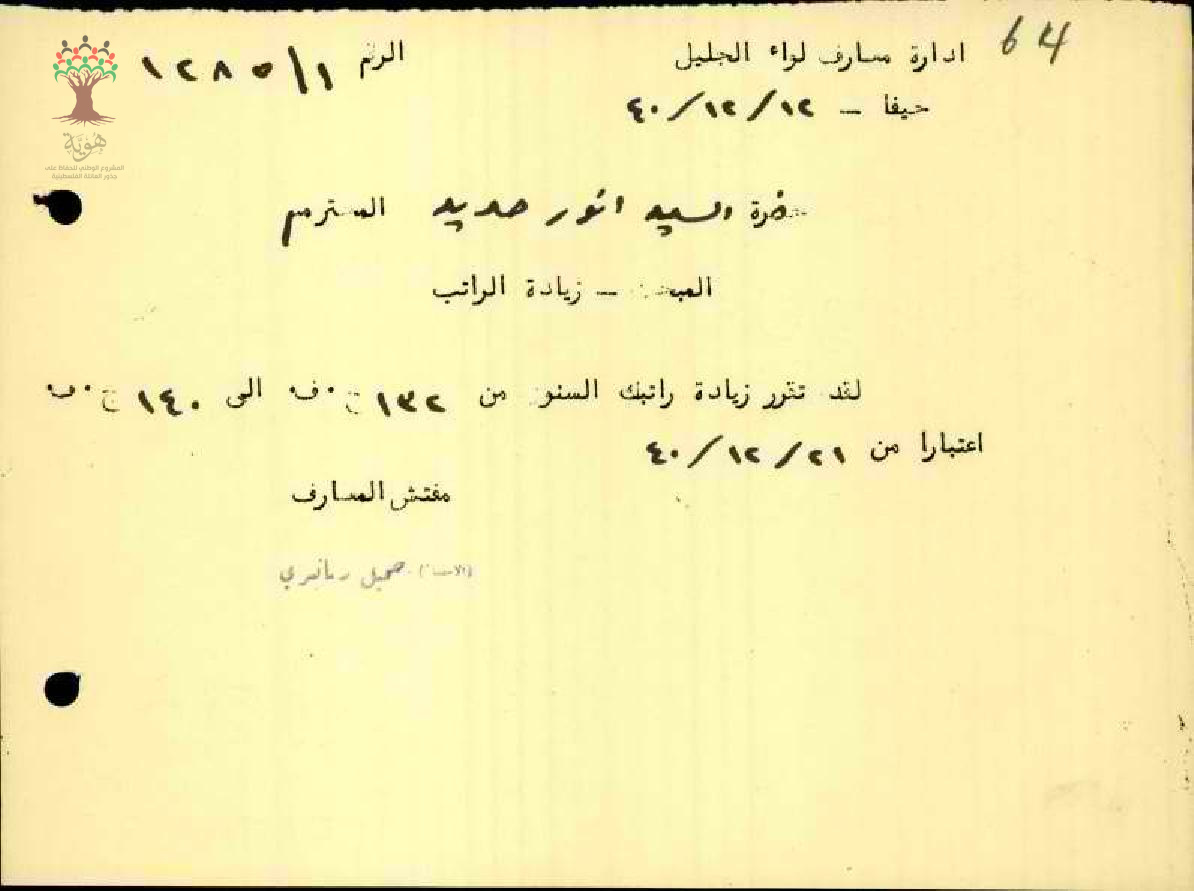 64
ادارة معارف لواء الجليل
الرقم ١/١٢٨٥
حيفا – ٤٠/١٢/١٢
هوية
المشروع الوطني للحفاظ على
جذور العائلة الفلسطينية
حضرة السيد انور حديد المحترم
المبحث – زيادة الراتب
لقد تقرر زيادة راتبك السنوي من ١٣٢ ج.ف الى ١٤٠ ج.ف
اعتبارا من ٤٠/١٢/٢١
مفتش المعارف
(الامضاء)